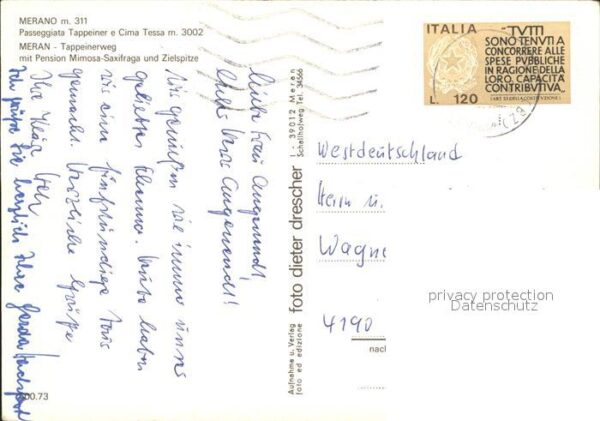 MERANO m. 311
Passeggiata Tappeiner e Cima Tessa m. 3002
MERAN - Tappeinerweg
mit Pension Mimosa-Saxifraga und Zielspitze
Liebe Frau
Wir genießen wie immer unser
geliebtes Meran. Heute haben
wir eine fünfstündige Tour
gemacht. Herzliche Grüße
Ihre
Ich grüße Sie herzlich Ihre Gerda
00.73
Aufnahme u. Verlag
foto ed edizione
foto dieter drescher
I - 39012 Meran
Schallhofweg Tel. 34566
ITALIA
TUTTI
SONO TENUTI A
CONCORRERE ALLE
SPESE PUBBLICHE
IN RAGIONE DELLA
LORO CAPACITÀ
CONTRIBUTIVA
(ART. 53 DELLA COSTITUZIONE)
L. 120
Westdeutschland
Herrn u.
Wagne
4190
nach
privacy protection
Datenschutz